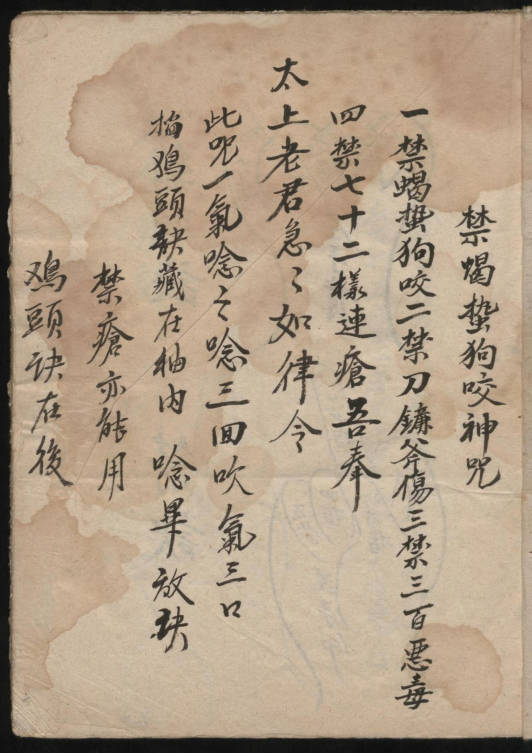 禁蝎蛰狗咬神咒
一禁蝎蛰狗咬二禁刀鐮斧傷三禁三百惡毒
四禁七十二樣連瘡吾奉
太上老君急〻如律令
此咒一氣唸之唸三回吹氣三口
掐鴉頭訣藏在袖内 唸畢放訣
禁瘡亦能用
鴉頭訣在後